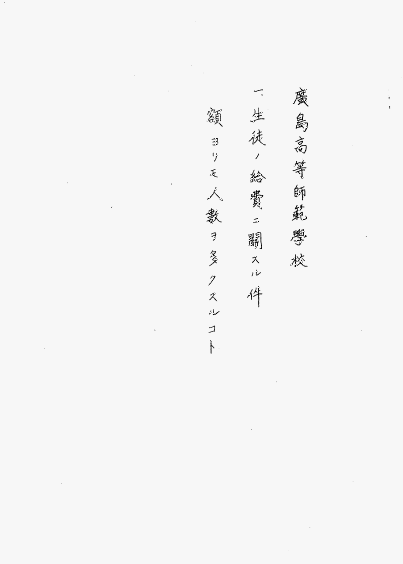 廣島高等師範學校
一、生徒ノ給費ニ關スル件
額ヨリモ人數ヲ多クスルコト